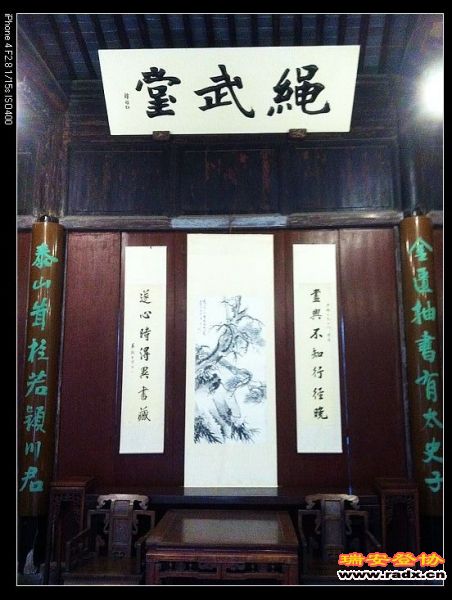 繩武堂
金匱抽書有太史子
泰山茸桂若潁川君
畫興不知行徑晚
逆心時得異書藏
iPhone 4 F2.8 1/15s ISO400
瑞安登协
www.radx.cn